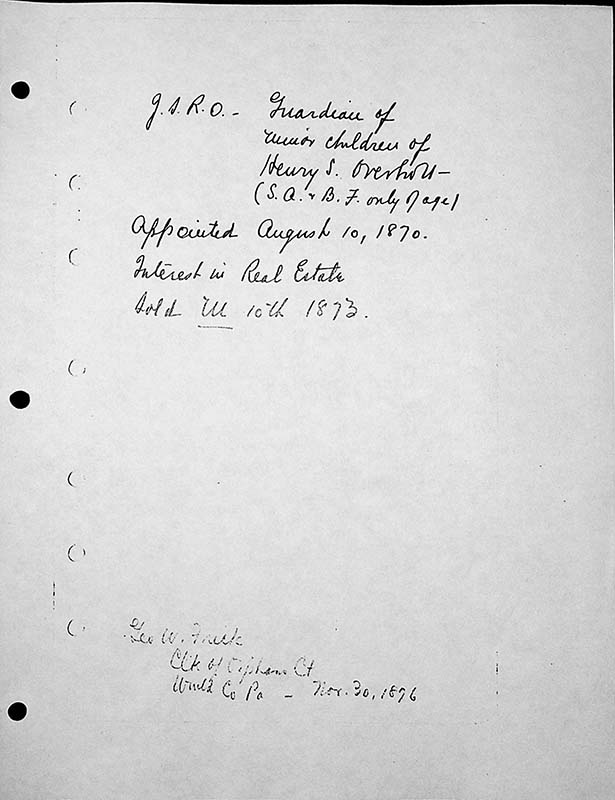 J.S.R.O. - Guardian of
minor children of
Henry S. Overholt -
(S. A. & B. F. only of age)
Appointed August 10, 1870.
Interest in Real Estate
sold 10th 1873.
Geo W. Frick
Clk of Orphans Ct
Wmld Co Pa - Nov. 30, 1876